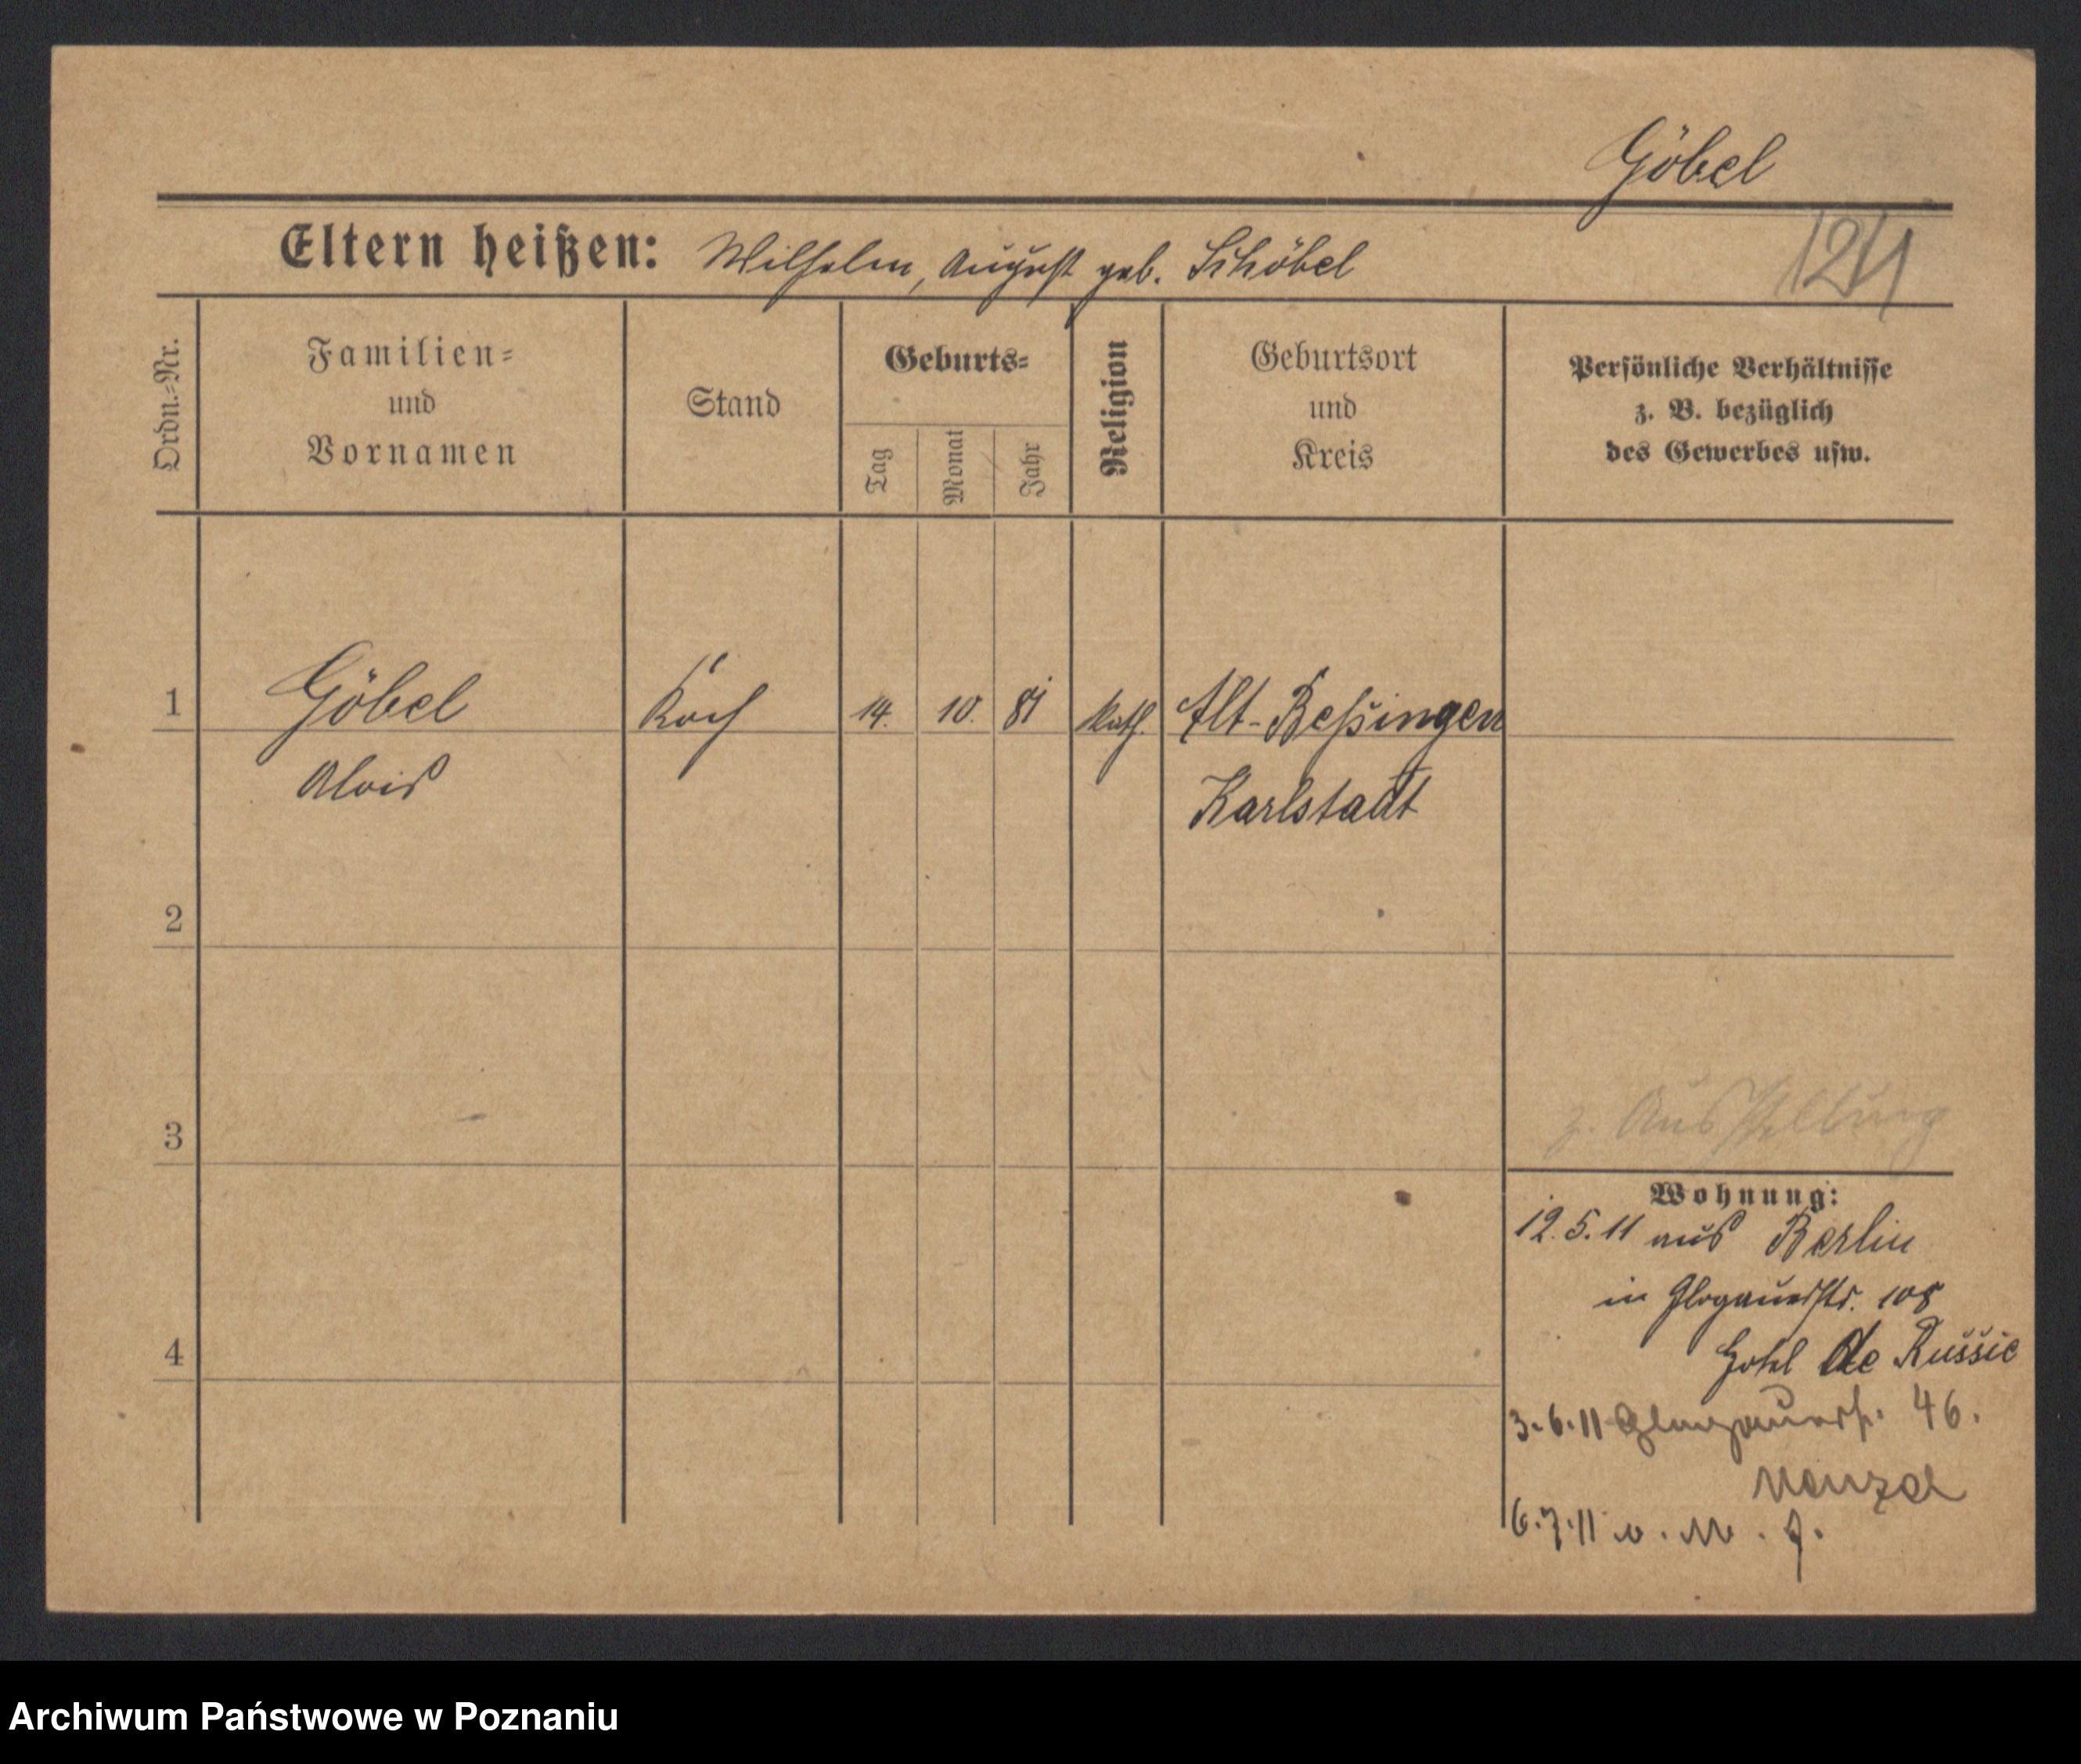 Göbel
Eltern heißen: Wilhelm, August geb. Schöbel
124
Ordn.-Nr.
Familien-
und
Vornamen
Stand
Geburts-
Tag
Monat
Jahr
Religion
Geburtsort
und
Kreis
Persönliche Verhältnisse
z. B. bezüglich
des Gewerbes usw.
1 Göbel Koch 14. 10. 81 kath. Alt-Beßingen
Alois Karlstadt
2
3
z. Ausstellung
Wohnung:
12.5.11 aus Berlin
in Glogauerstr. 108
Hotel de Russie
4
3.6.11 Glogauerstr. 46.
Menzel
6.7.11
Archiwum Państwowe w Poznaniu